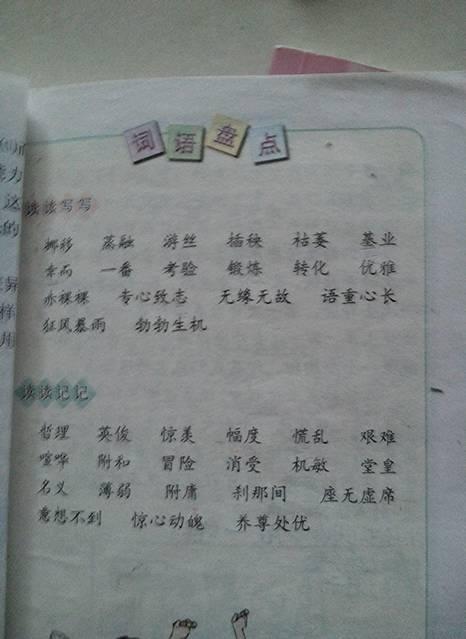 词语盘点
读读写写
挪移 蒸融 游丝 插秧 枯萎 基业
幸而 一番 考验 锻炼 转化 优雅
赤裸裸 专心致志 无缘无故 语重心长
狂风暴雨 勃勃生机
读读记记
哲理 英俊 惊羡 幅度 慌乱 艰难
喧哗 附和 冒险 消受 机敏 堂皇
名义 薄弱 附庸 刹那间 座无虚席
意想不到 惊心动魄 养尊处优
力
这
的
样